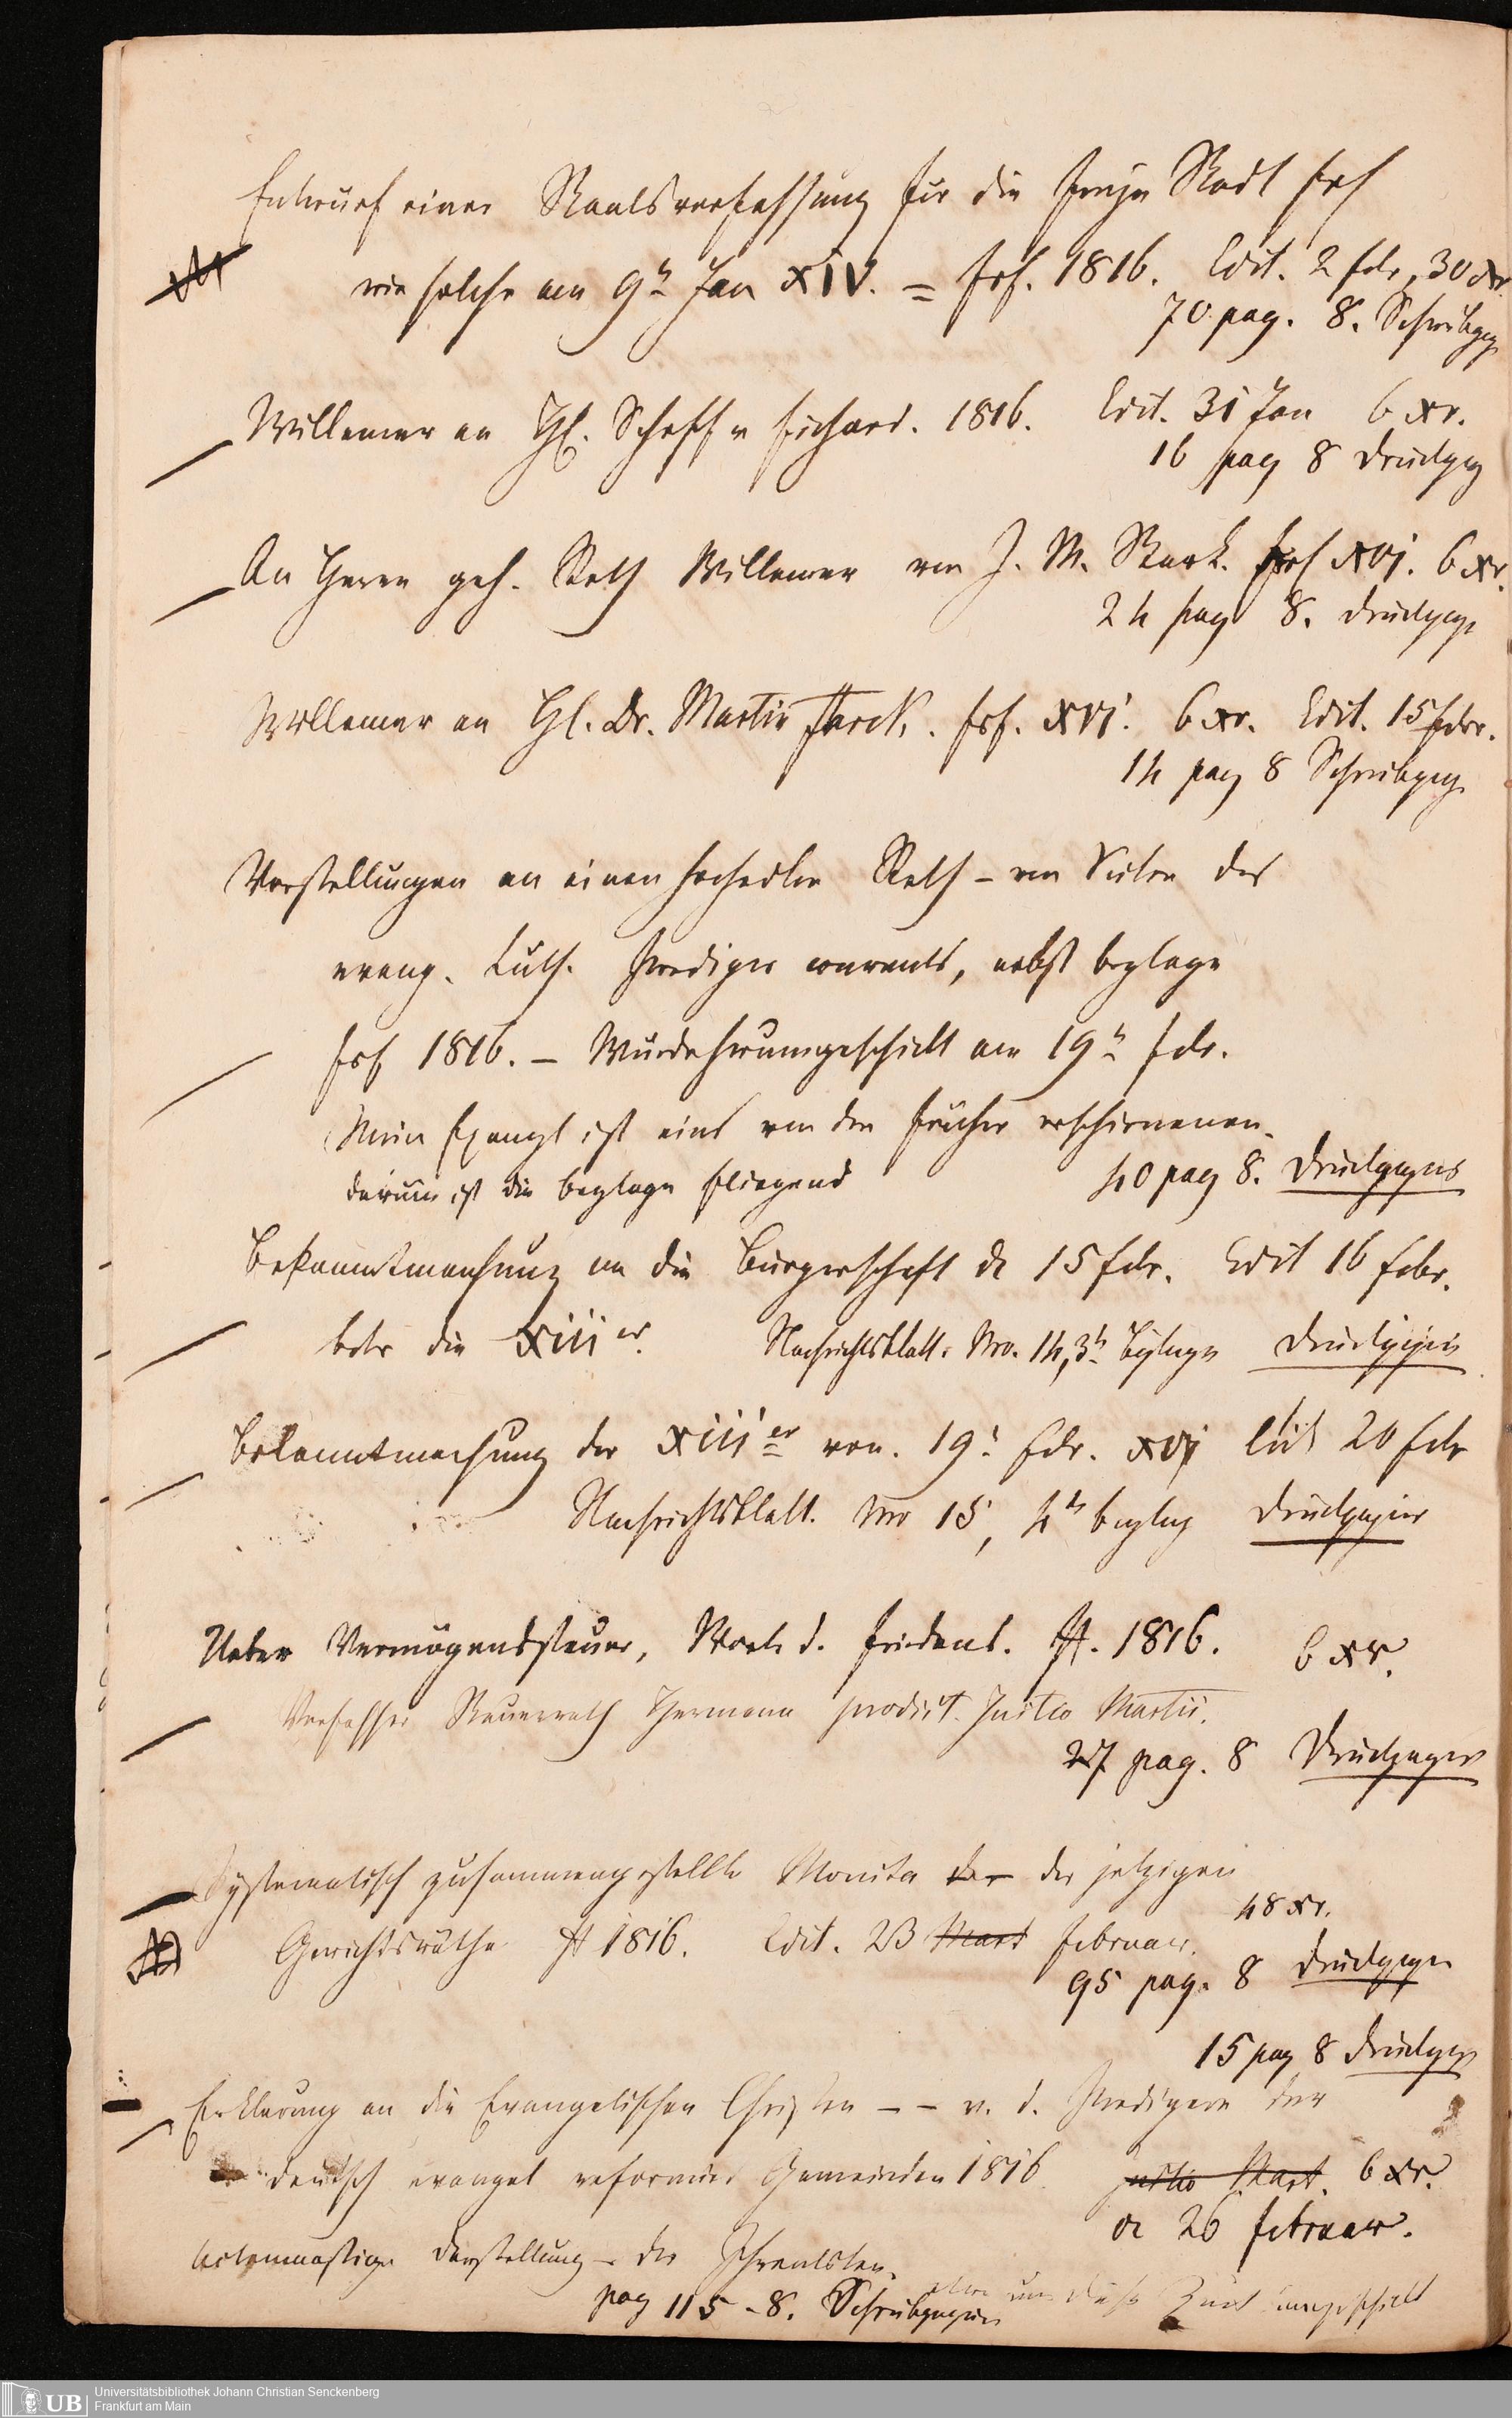 Entwurf einer Staatsverfassung für die Freye Stadt Frf
wie solche am 9t Jan XIV. = Frf. 1816. Edit. 2 febr, 30 xr
70 pag. 8. Schreibpp
Willemer an Hl. Scheff v Fichard. 1816. Edit. 31 Jan 6 xr.
16 pag 8 Druckpp
An Herrn geh. Rath Willemer von J. M. Stark. Frf XVI. 6 xr.
24 pag 8. Druckpp
Willemer an Hl. Dr. Martin Starck. Frf. XVI. 6 xr. Edit. 15 febr.
14 pag 8 Schreibpp
Vorstellungen an einen hochedlen Rath – von Seiten des
evang. Luth. Prediger convents, nebst beylage
Frf 1816. – Wurde herumgeschickt am 19t febr.
Mein Exempl ist eins von den früher erschienenen.
darum ist die beylage fliegend 40 pag 8. Druckpapier
Bekanntmachung an die Bürgerschaft d 15 febr. Edit 16 febr.
betr die XIIIer. Nachrichtsblatt. Nro. 14, 3t Beylage Druckpapier
Bekanntmachung der XIIIer von 19t febr. XVI Edit 20 febr
Nachrichtsblatt. Nro 15, 4te beylag Druckpapier
Ueber Vermögenssteuer, Worte d. Friedens. Ff. 1816. 6 xr.
Verfasser Steuerrath Hermann prodiit Initio Martii.
27 pag. 8 Druckpapier
Systematisch zusammengestellte Monita der der jetzigen
48 xr.
Gerichtsräthe Ff 1816. Edit. 23 Mart februar.
95 pag. 8 Druckpapier
15 pag 8 Druckpap
Erklärung an die Evangelischen Christen – – v. d. Predigern der
deutsch evangel reformirt Gemeinden 1816 initio Mart. 6 xr.
d 26 februar.
Actenmässige Darstellung – der
pag 115 - 8. Schreibpapier um diese Zeit